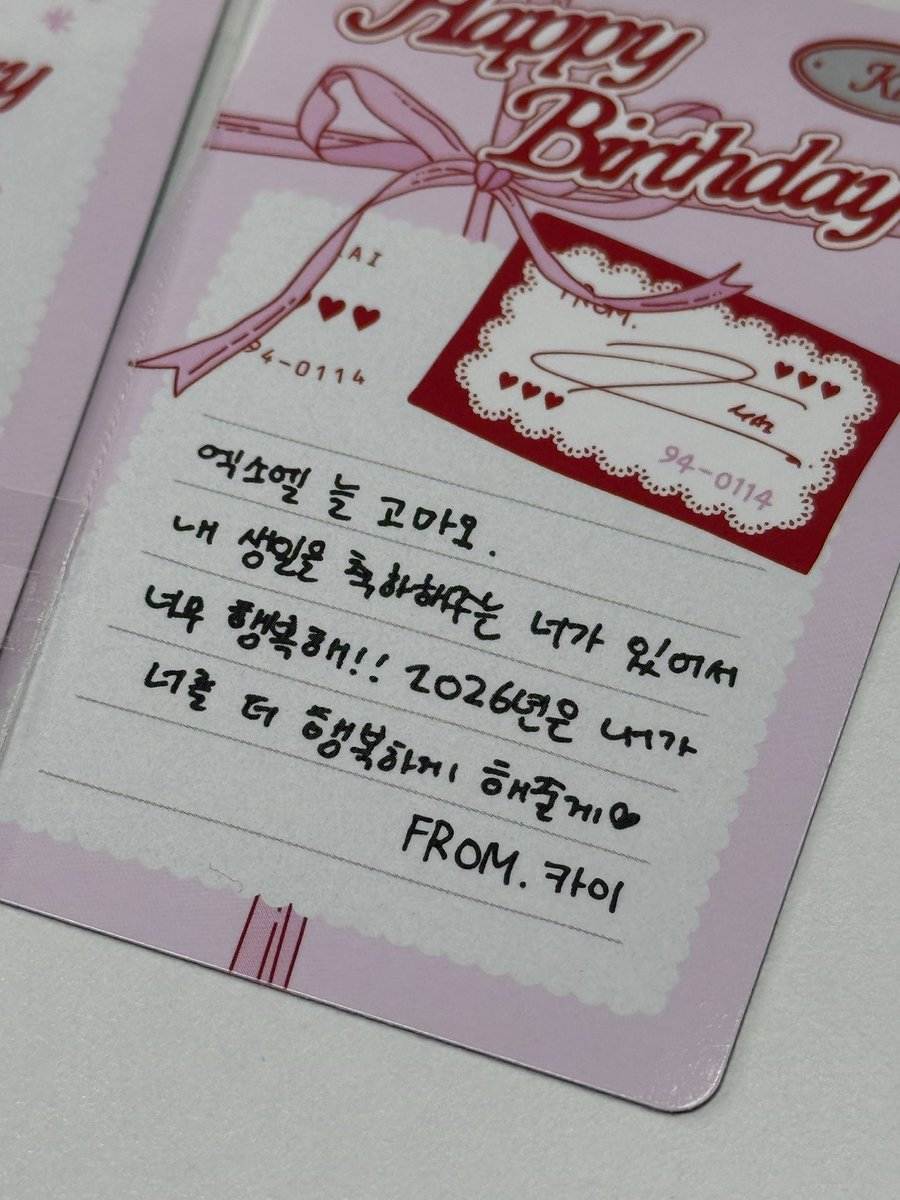 Happy
Birthday
AI
94-0114
FROM.
KAI
94-0114
엑소엘 늘 고마오.
내 생일을 축하해주는 너가 있어서
너무 행복해!! 2026년은 내가
너를 더 행복하게 해줄게♥
FROM. 카이